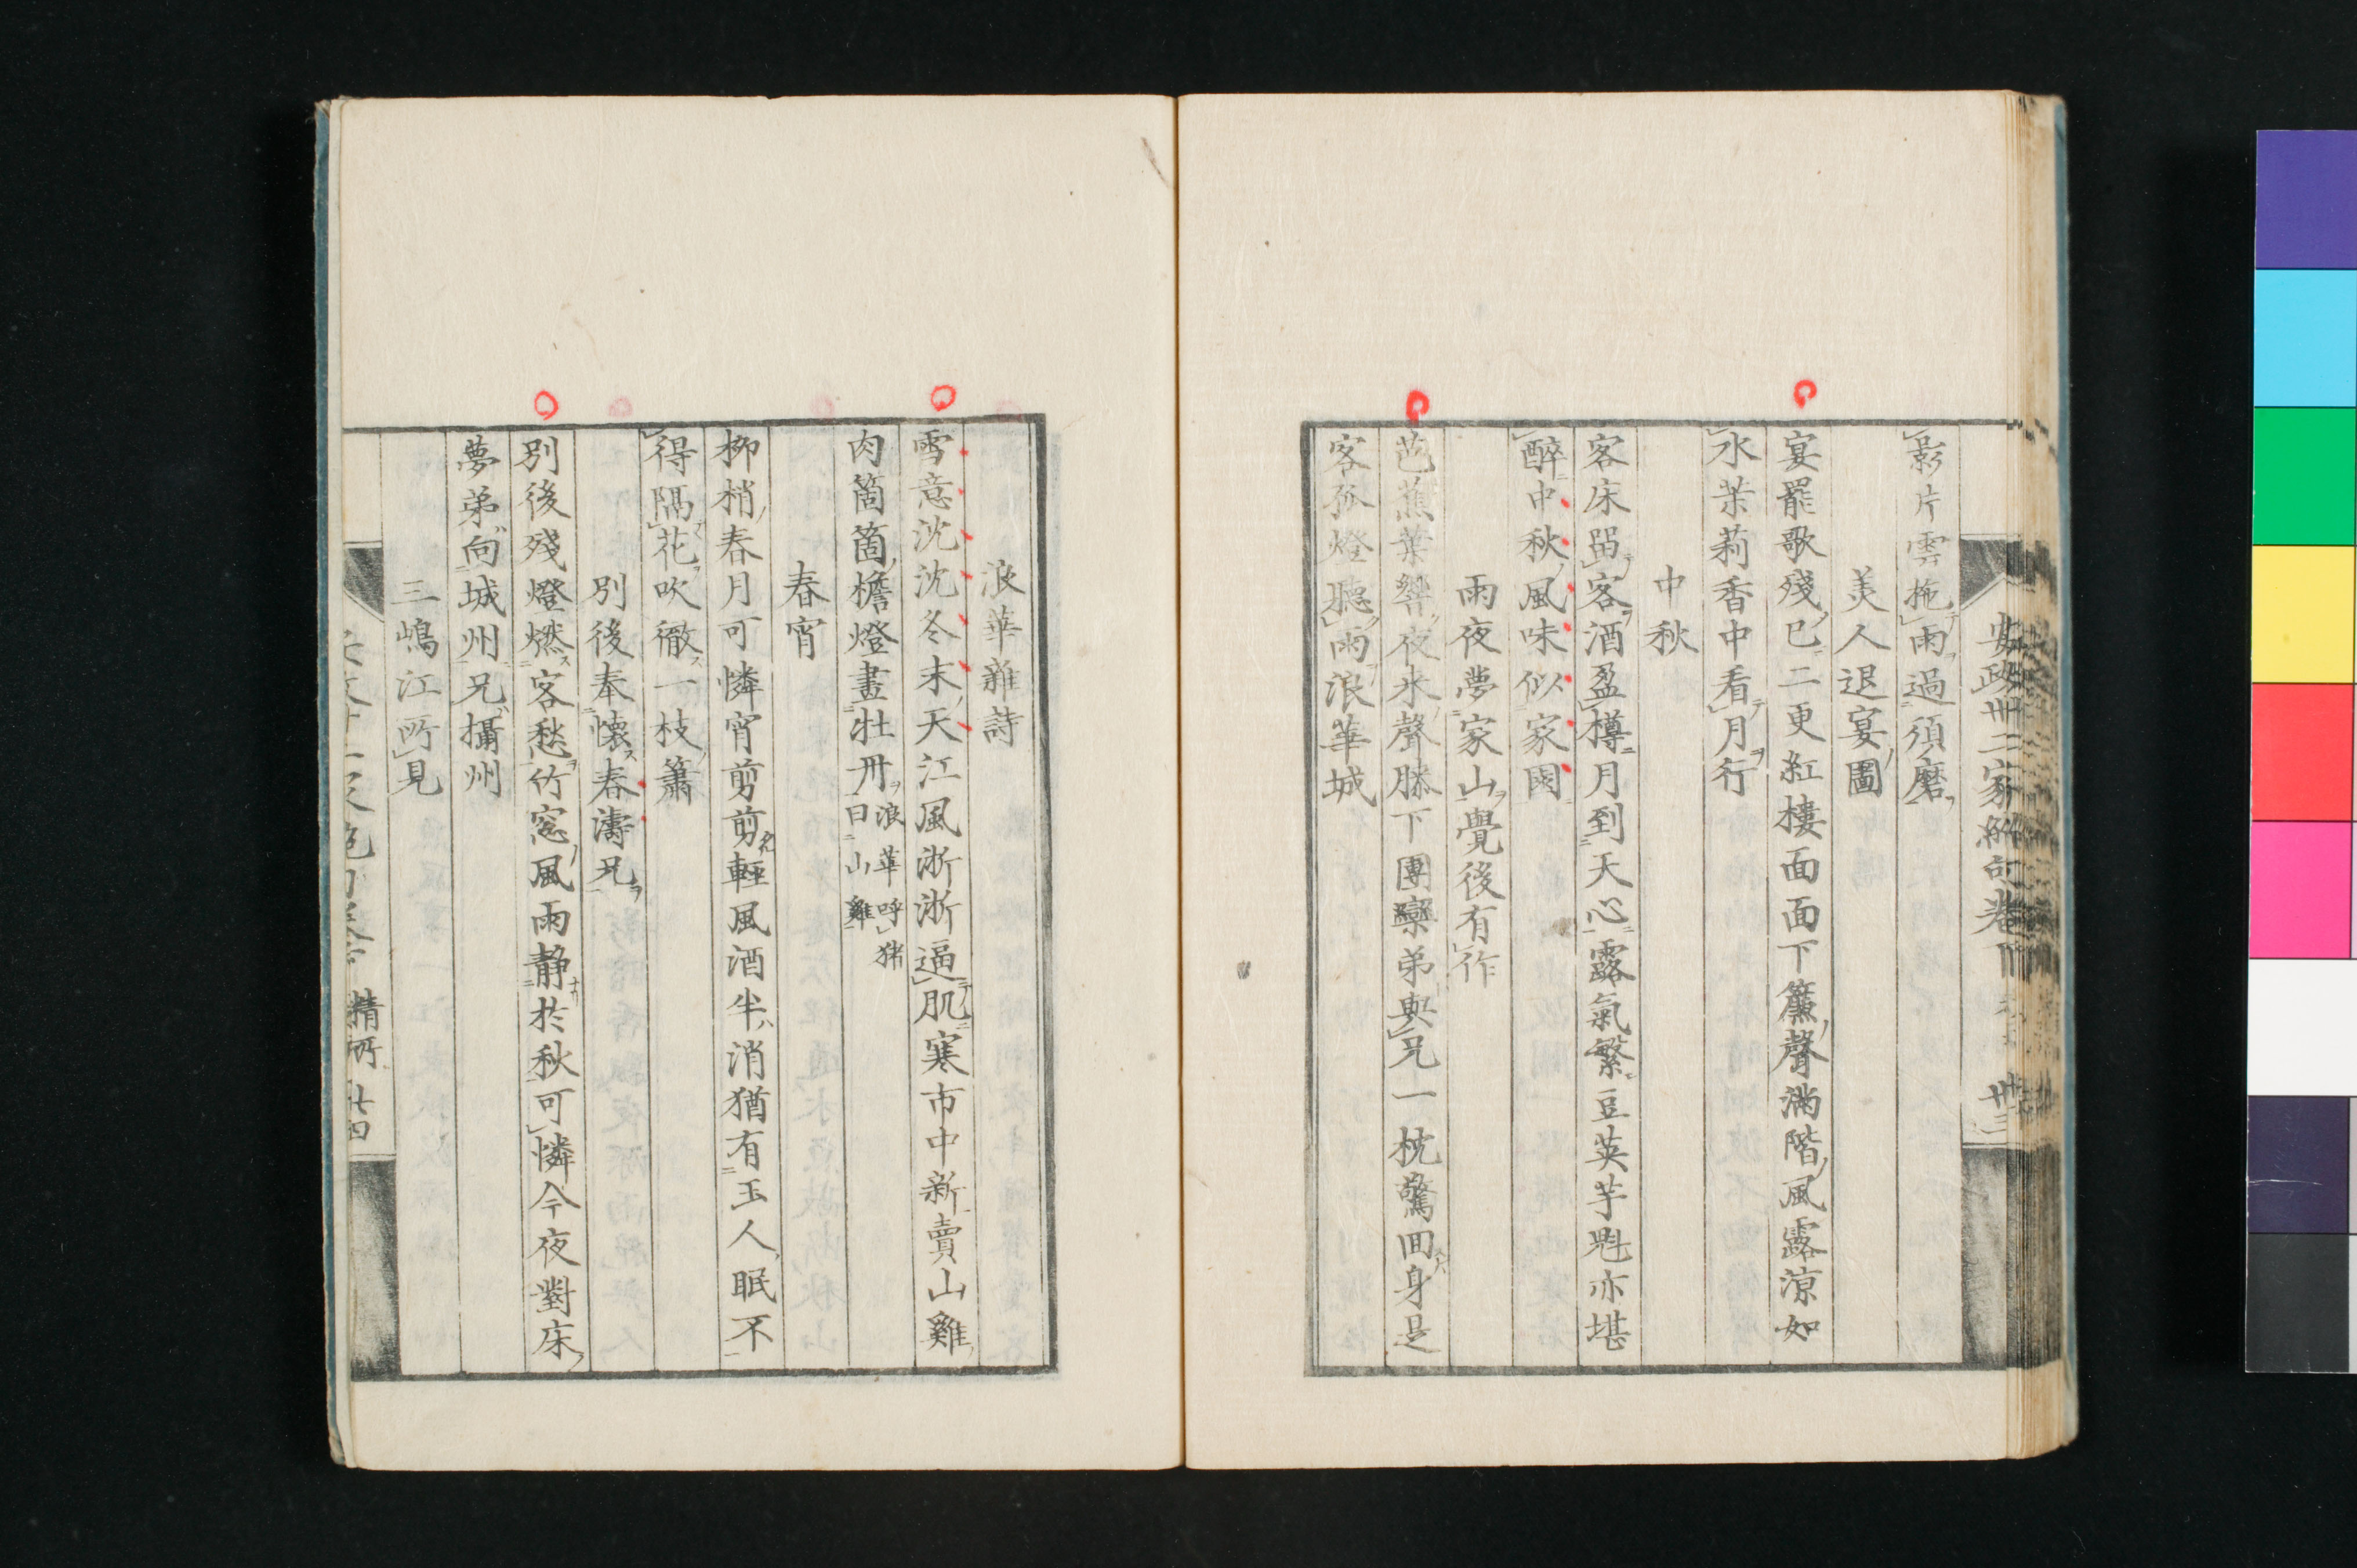 安政卅二家絶句卷下
影片雲拖雨過須磨
美人退宴圖
宴罷歌殘已二更紅樓面面下簾聲滿階風露涼如
水茉莉香中看月行
中秋
客床留客酒盈樽月到天心露氣繁豆莢芋魁亦堪
醉中秋風味似家園
雨夜夢家山覺後有作
芭蕉葉響夜水聲膝下團欒弟與兄一枕驚回身是
客孤燈聽雨浪華城
浪華雜詩
雪意沈沈冬末天江風浙浙逼肌寒市中新賣山雞
肉箇箇檐燈畫牡丹浪華呼猪
曰山雞
春宵
柳梢春月可憐宵剪剪輕風酒半消猶有玉人眠不
得隔花吹徹一枝簫
別後奉懷春濤兄
別後殘燈燃客愁竹窓風雨靜於秋可憐今夜對床
夢弟向城州兄攝州
三嶋江所見
精所 廿四